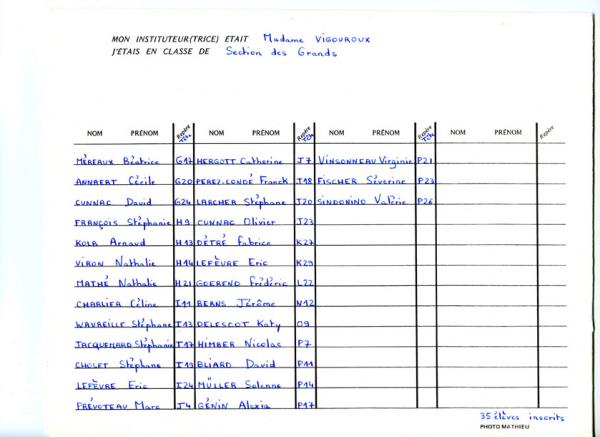 MON INSTITUTEUR(TRICE) ÉTAIT Madame VIGOUROUX
J'ÉTAIS EN CLASSE DE Section des Grands
NOM PRÉNOM Repère Tête NOM PRÉNOM Repère Tête NOM PRÉNOM Repère Tête NOM PRÉNOM Repère
MÉREAUX Béatrice G17 HERGOTT Catherine J7 VINSONNEAU Virginie P21
ANNAERT Cécile G20 PEREZ-CONDÉ Franck J18 FISCHER Séverine P23
CUNNAC David G24 LARCHER Stéphane J20 SINDONINO Valérie P26
FRANÇOIS Stéphanie H9 CUNNAC Olivier J23
KOLB Arnaud H13 DÉTRÉ Fabrice K27
VIRON Nathalie H14 LEFÈVRE Eric K29
MATHÉ Nathalie H21 GOEREND Frédéric L22
CHARLIER Céline I11 BERNS Jérôme N12
WAVREILLE Stéphane I13 DELESCOT Katy O9
JACQUEMARD Stéphanie I17 HIMBER Nicolas P7
CHOLET Stéphane I19 BLIARD David P11
LEFÈVRE Eric I24 MÜLLER Solenne P14
PRÉVOTEAU Marc J4 GÉNIN Alexia P17
35 élèves inscrits
PHOTO MATHIEU